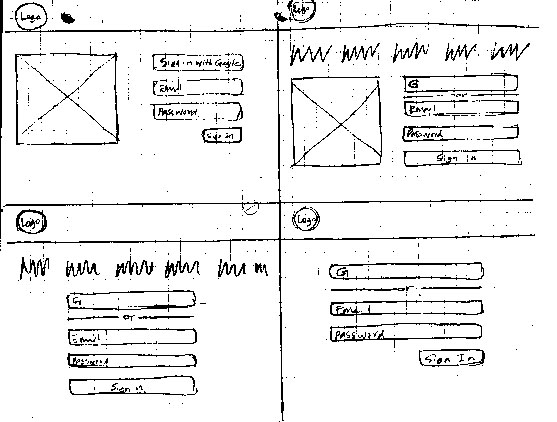 Logo
Sign in with Google
Email
Password
Sign in
Logo
G
or
Email
Password
Sign in
Logo
G
or
Email
Password
Sign in
Logo
G
or
Email
Password
Sign In